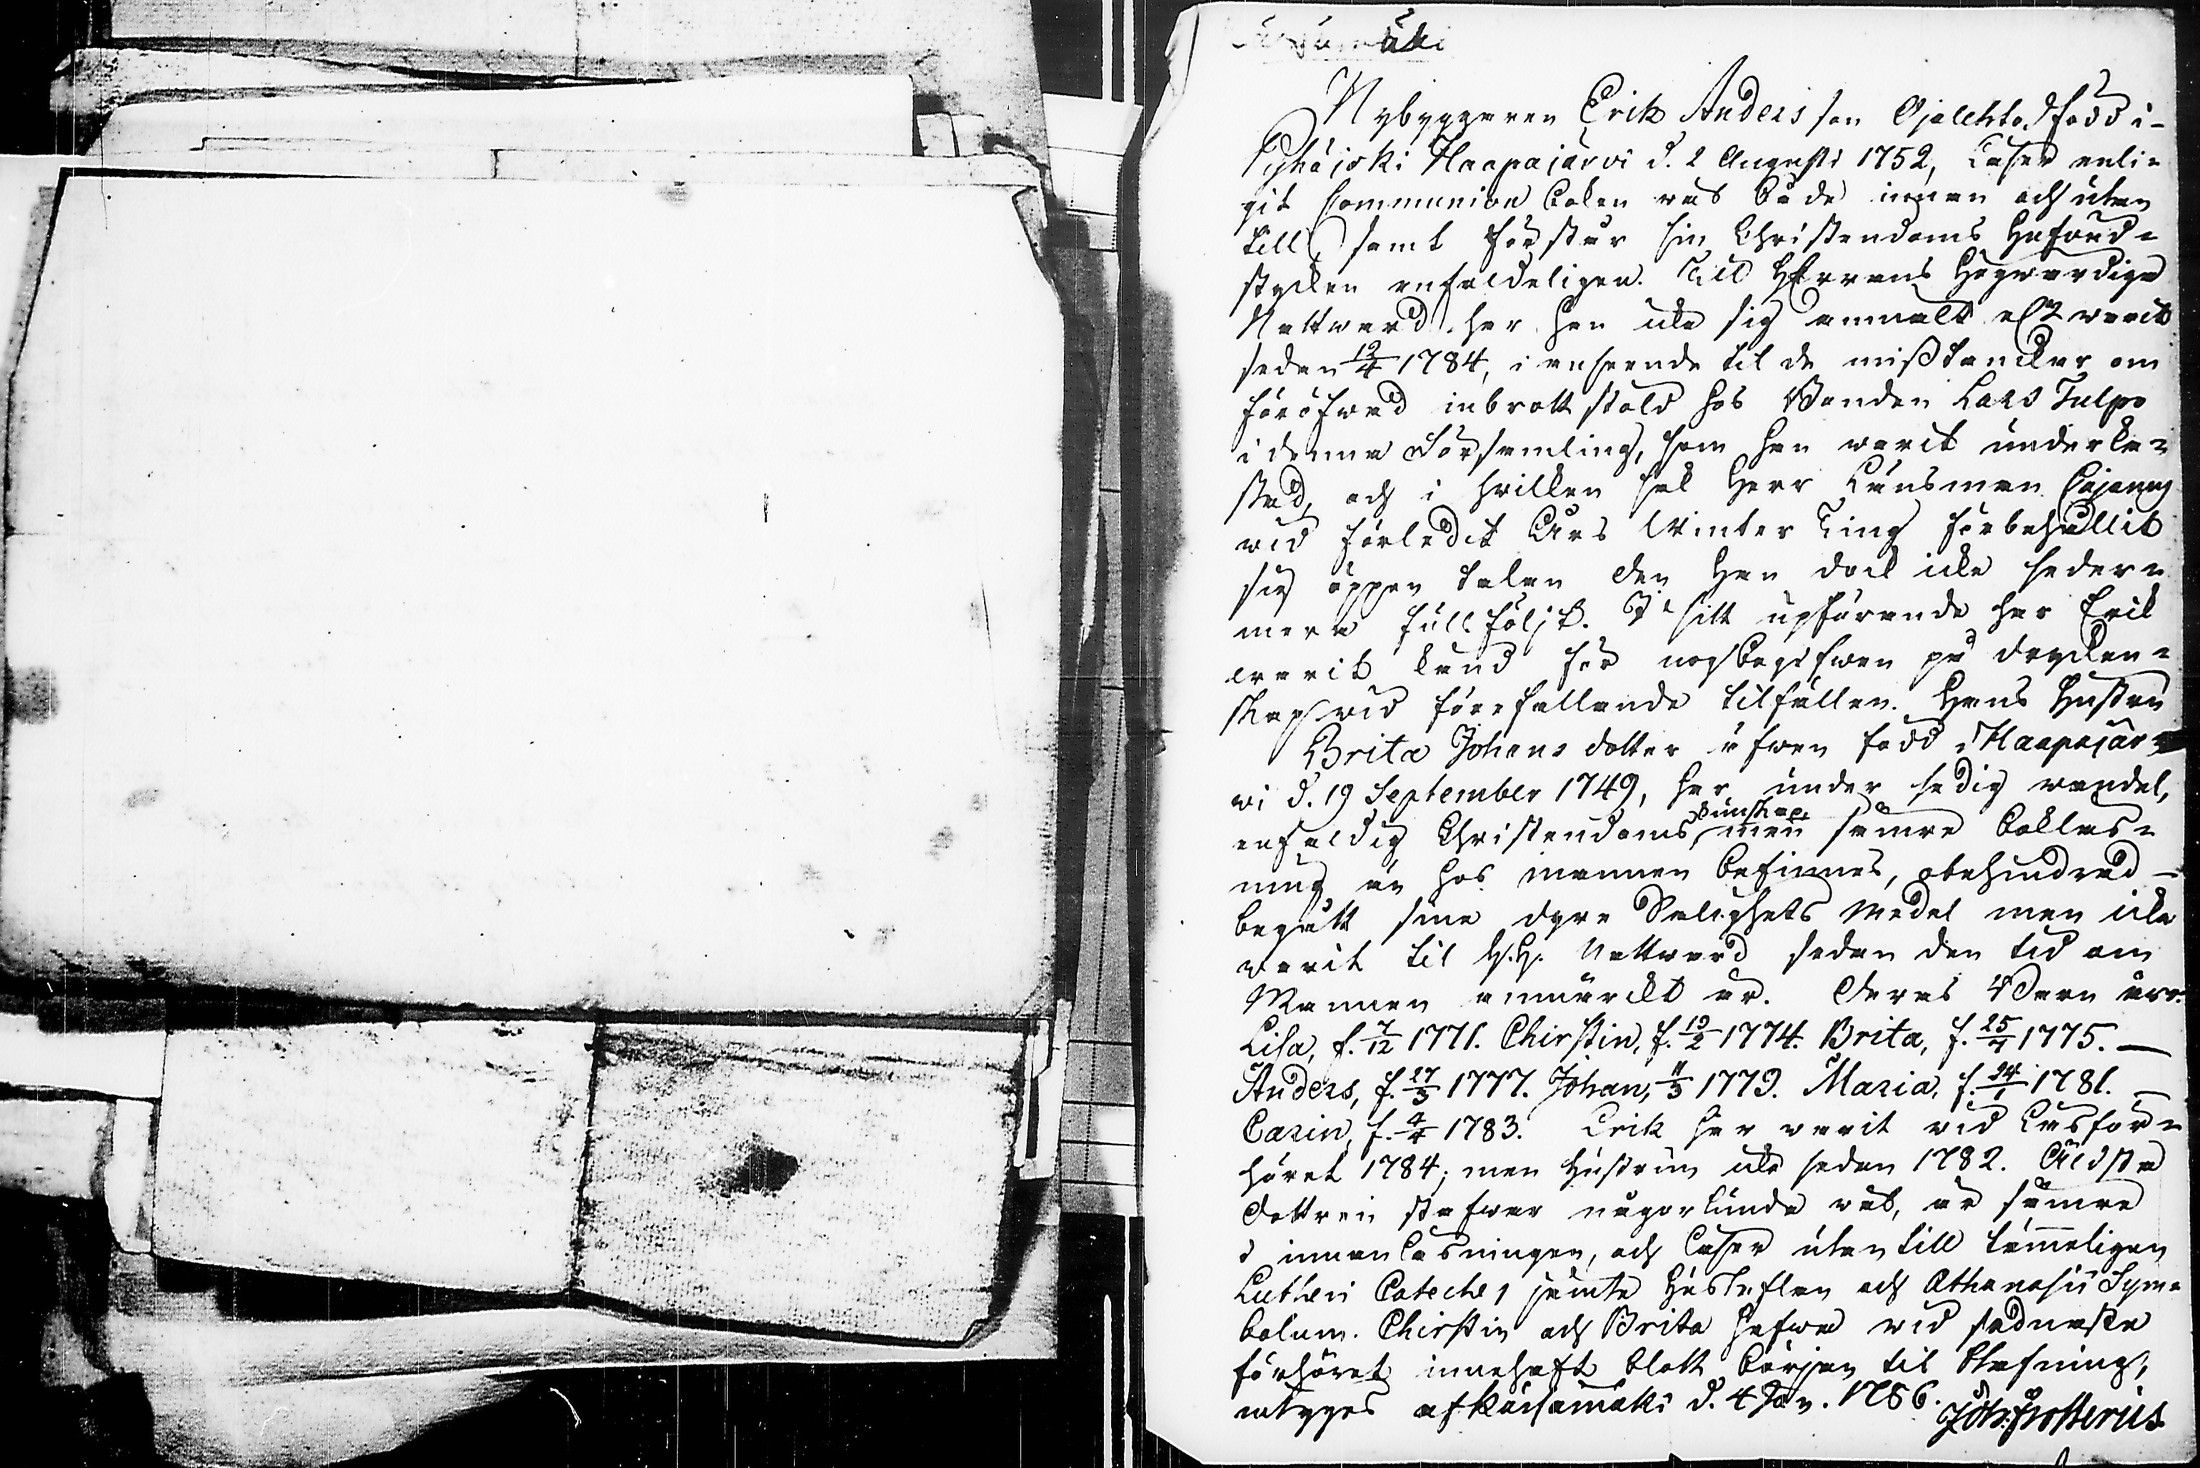 Nybyggaren Erik Andersson Ojalehto, född i
Pyhäjoki Haapajärvi d. 2 Augusti 1752, Läser enli-
git Communion Boken väl både innan och utan
till, samt förstår sin Christendoms hufvud-
stycken enfaldeligen. Til HErrans Högwärdiga
Nattward har han icke sig anmält el. varit
sedan 12/4 1784, i anseende til de misstanckar om
föröfwad inbrott stöld hos Bonden Lars Tulpo
i denna Församling, som han warit underka-
stad, och i hvilken sak Herr Länsman Cajanus
wid förledit Års Winter Ting förbehållit
sig öppen talan den han dock icke seder-
mera fullföljt. I sitt upförande har Erik
warit känd för nog begifwen på drycken-
skap wid förefallande tilfällen. Hans Hustru
Brita Johans dotter äfwen född i Haapajär-
wi d. 19 September 1749, har under sedig wandel,
enfaldig Christendoms kunskap, men sämre bokläs-
ning än hos mannen befinnes, obehindrad
begått sina dyra Salighets Medel men icke
warit til H.H. Nattward sedan den tid om
Mannen anmärckt är. Deras Barn äro:
Lisa, f. 7/12 1771. Chirstin, f. 19/2 1774. Brita, f. 25/7 1775. —
Anders, f. 27/3 1777. Johan, 11/3 1779. Maria, f. 24/1 1781. —
Carin, f. 4/4 1783. Erik har warit vid Läsför-
höret 1784; men hustrun icke sedan 1782. Äldsta
Dottren stafwar någorlunda rät, är sämre
i innanläsningen, och läser utantill tämeligen
Lutheri Cateches jämte Hustaflan och Athanasii Sym-
bolum. Chirstin och Brita hafwa wid sednaste
förhöret innehaft blott början til Stafning,
intygas af Kärsämäki d. 4 Jan. 1786.
Joh. Frosterus